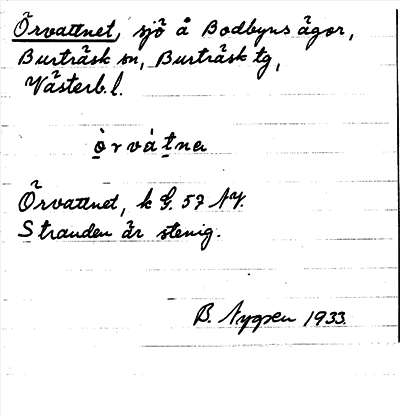 Örvattnet, sjö å Bodbyns ägor,
Burträsk sn, Burträsk tg,
Västerb. l.
òrvátna
Örvattnet, k G. 57 NV.
Stranden är stenig.
B. Nygren 1933.